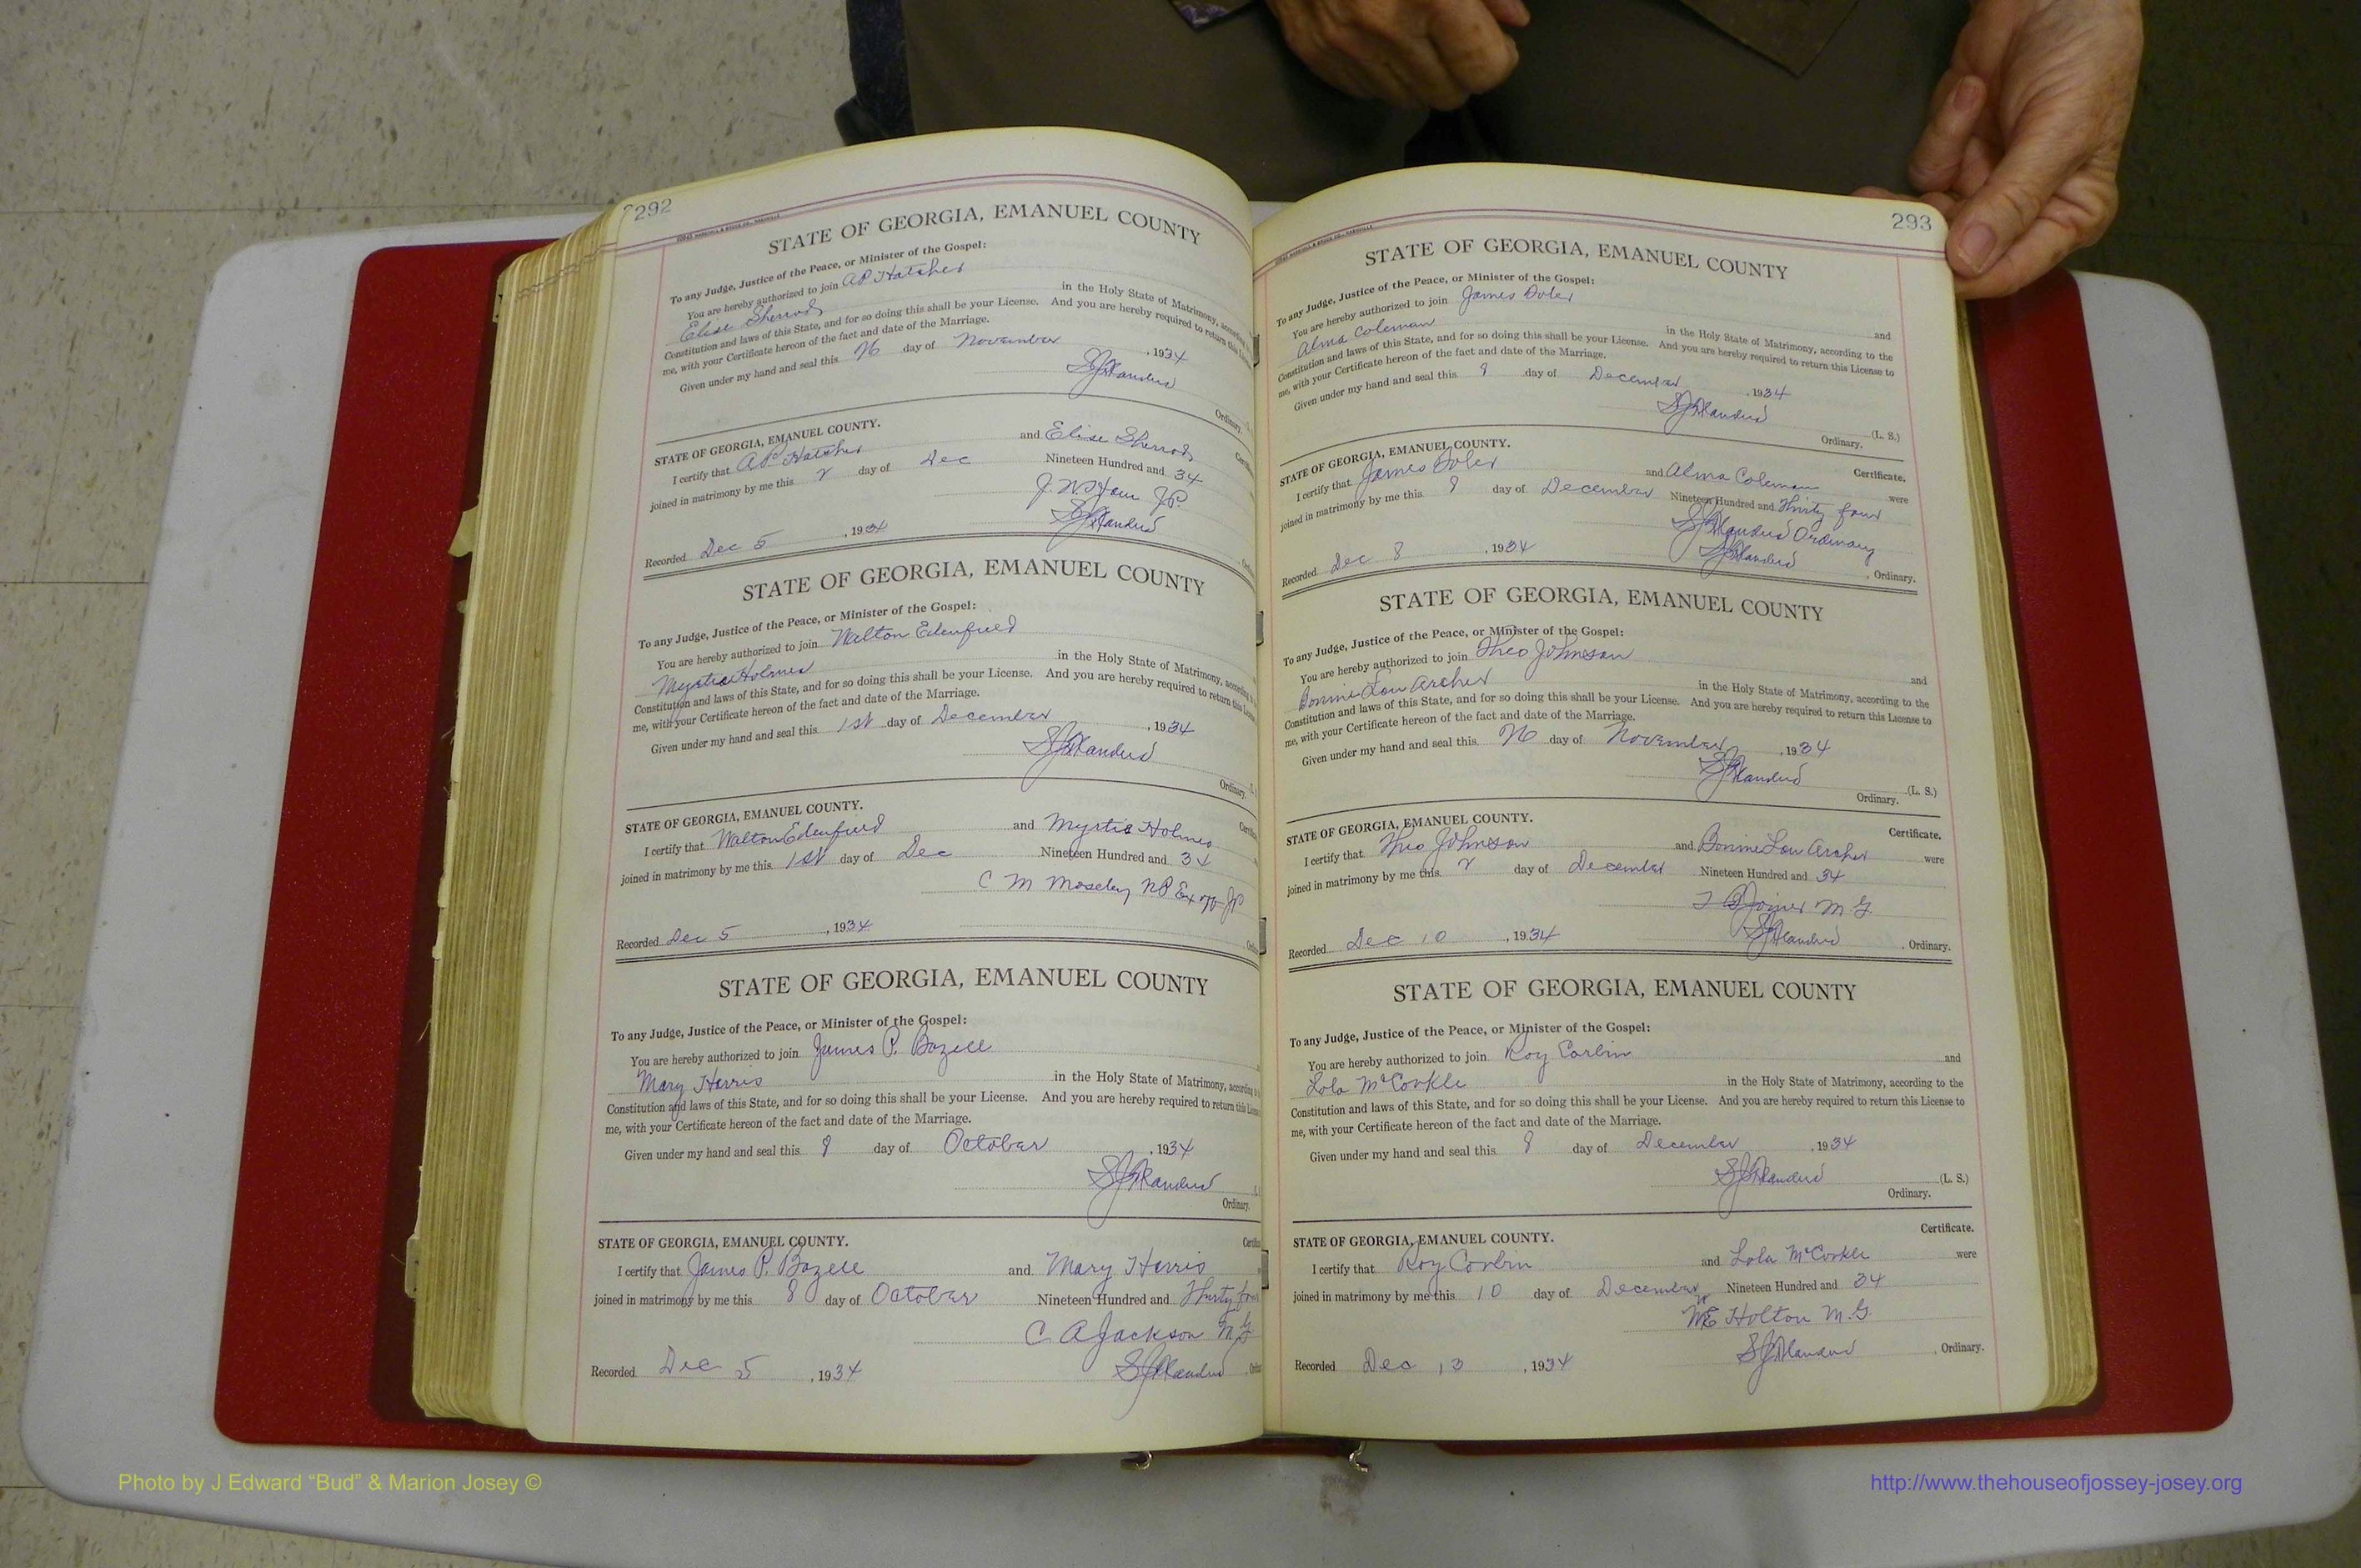 292
STATE OF GEORGIA, EMANUEL COUNTY
To any Judge, Justice of the Peace, or Minister of the Gospel:
You are hereby authorized to join A P Hatcher
Elise Sherrod in the Holy State of Matrimony,
Constitution and laws of this State, and for so doing this shall be your License. And you are hereby required to return this
me, with your Certificate hereon of the fact and date of the Marriage.
Given under my hand and seal this 26 day of November, 1934
Ordinary.
STATE OF GEORGIA, EMANUEL COUNTY.
I certify that A P Hatcher and Elise Sherrod
joined in matrimony by me this 2 day of Dec Nineteen Hundred and 34
J.P.
Recorded Dec 5, 1934
STATE OF GEORGIA, EMANUEL COUNTY
To any Judge, Justice of the Peace, or Minister of the Gospel:
You are hereby authorized to join Walton Edenfield
Myrtie Holmes in the Holy State of Matrimony,
Constitution and laws of this State, and for so doing this shall be your License. And you are hereby required to return this
me, with your Certificate hereon of the fact and date of the Marriage.
Given under my hand and seal this 1st day of December, 1934
Ordinary.
STATE OF GEORGIA, EMANUEL COUNTY.
I certify that Walton Edenfield and Myrtie Holmes
joined in matrimony by me this 1st day of Dec Nineteen Hundred and 34
C M Moseley NP Ex off JP
Recorded Dec 5, 1934
STATE OF GEORGIA, EMANUEL COUNTY
To any Judge, Justice of the Peace, or Minister of the Gospel:
You are hereby authorized to join James P. Bozell
Mary Harris in the Holy State of Matrimony,
Constitution and laws of this State, and for so doing this shall be your License. And you are hereby required to return this
me, with your Certificate hereon of the fact and date of the Marriage.
Given under my hand and seal this 8 day of October, 1934
Ordinary.
STATE OF GEORGIA, EMANUEL COUNTY.
I certify that James P. Bozell and Mary Harris
joined in matrimony by me this 8 day of October Nineteen Hundred and Thirty four
C A Jackson M G
Recorded Dec 5, 1934
293
STATE OF GEORGIA, EMANUEL COUNTY
To any Judge, Justice of the Peace, or Minister of the Gospel:
You are hereby authorized to join James and
Alma Coleman in the Holy State of Matrimony, according to the
Constitution and laws of this State, and for so doing this shall be your License. And you are hereby required to return this License to
me, with your Certificate hereon of the fact and date of the Marriage.
Given under my hand and seal this 8 day of December, 1934
(L. S.)
Ordinary.
STATE OF GEORGIA, EMANUEL COUNTY. Certificate.
I certify that James and Alma Coleman were
joined in matrimony by me this 8 day of December Nineteen Hundred and Thirty four
Ordinary
Recorded Dec 8, 1934, Ordinary.
STATE OF GEORGIA, EMANUEL COUNTY
To any Judge, Justice of the Peace, or Minister of the Gospel:
You are hereby authorized to join Theo Johnson and
Bonnie Lou Archer in the Holy State of Matrimony, according to the
Constitution and laws of this State, and for so doing this shall be your License. And you are hereby required to return this License to
me, with your Certificate hereon of the fact and date of the Marriage.
Given under my hand and seal this 26 day of November, 1934
(L. S.)
Ordinary.
STATE OF GEORGIA, EMANUEL COUNTY. Certificate.
I certify that Theo Johnson and Bonnie Lou Archer were
joined in matrimony by me this 2 day of December Nineteen Hundred and 34
Joiner M G
Recorded Dec 10, 1934, Ordinary.
STATE OF GEORGIA, EMANUEL COUNTY
To any Judge, Justice of the Peace, or Minister of the Gospel:
You are hereby authorized to join Roy Corbin and
Lola McCorkle in the Holy State of Matrimony, according to the
Constitution and laws of this State, and for so doing this shall be your License. And you are hereby required to return this License to
me, with your Certificate hereon of the fact and date of the Marriage.
Given under my hand and seal this 8 day of December, 1934
(L. S.)
Ordinary.
STATE OF GEORGIA, EMANUEL COUNTY. Certificate.
I certify that Roy Corbin and Lola McCorkle were
joined in matrimony by me this 10 day of December Nineteen Hundred and 34
Holton M.G.
Recorded Dec 13, 1934, Ordinary.
Photo by J Edward “Bud” & Marion Josey ©
http://www.thehouseofjossey-josey.org